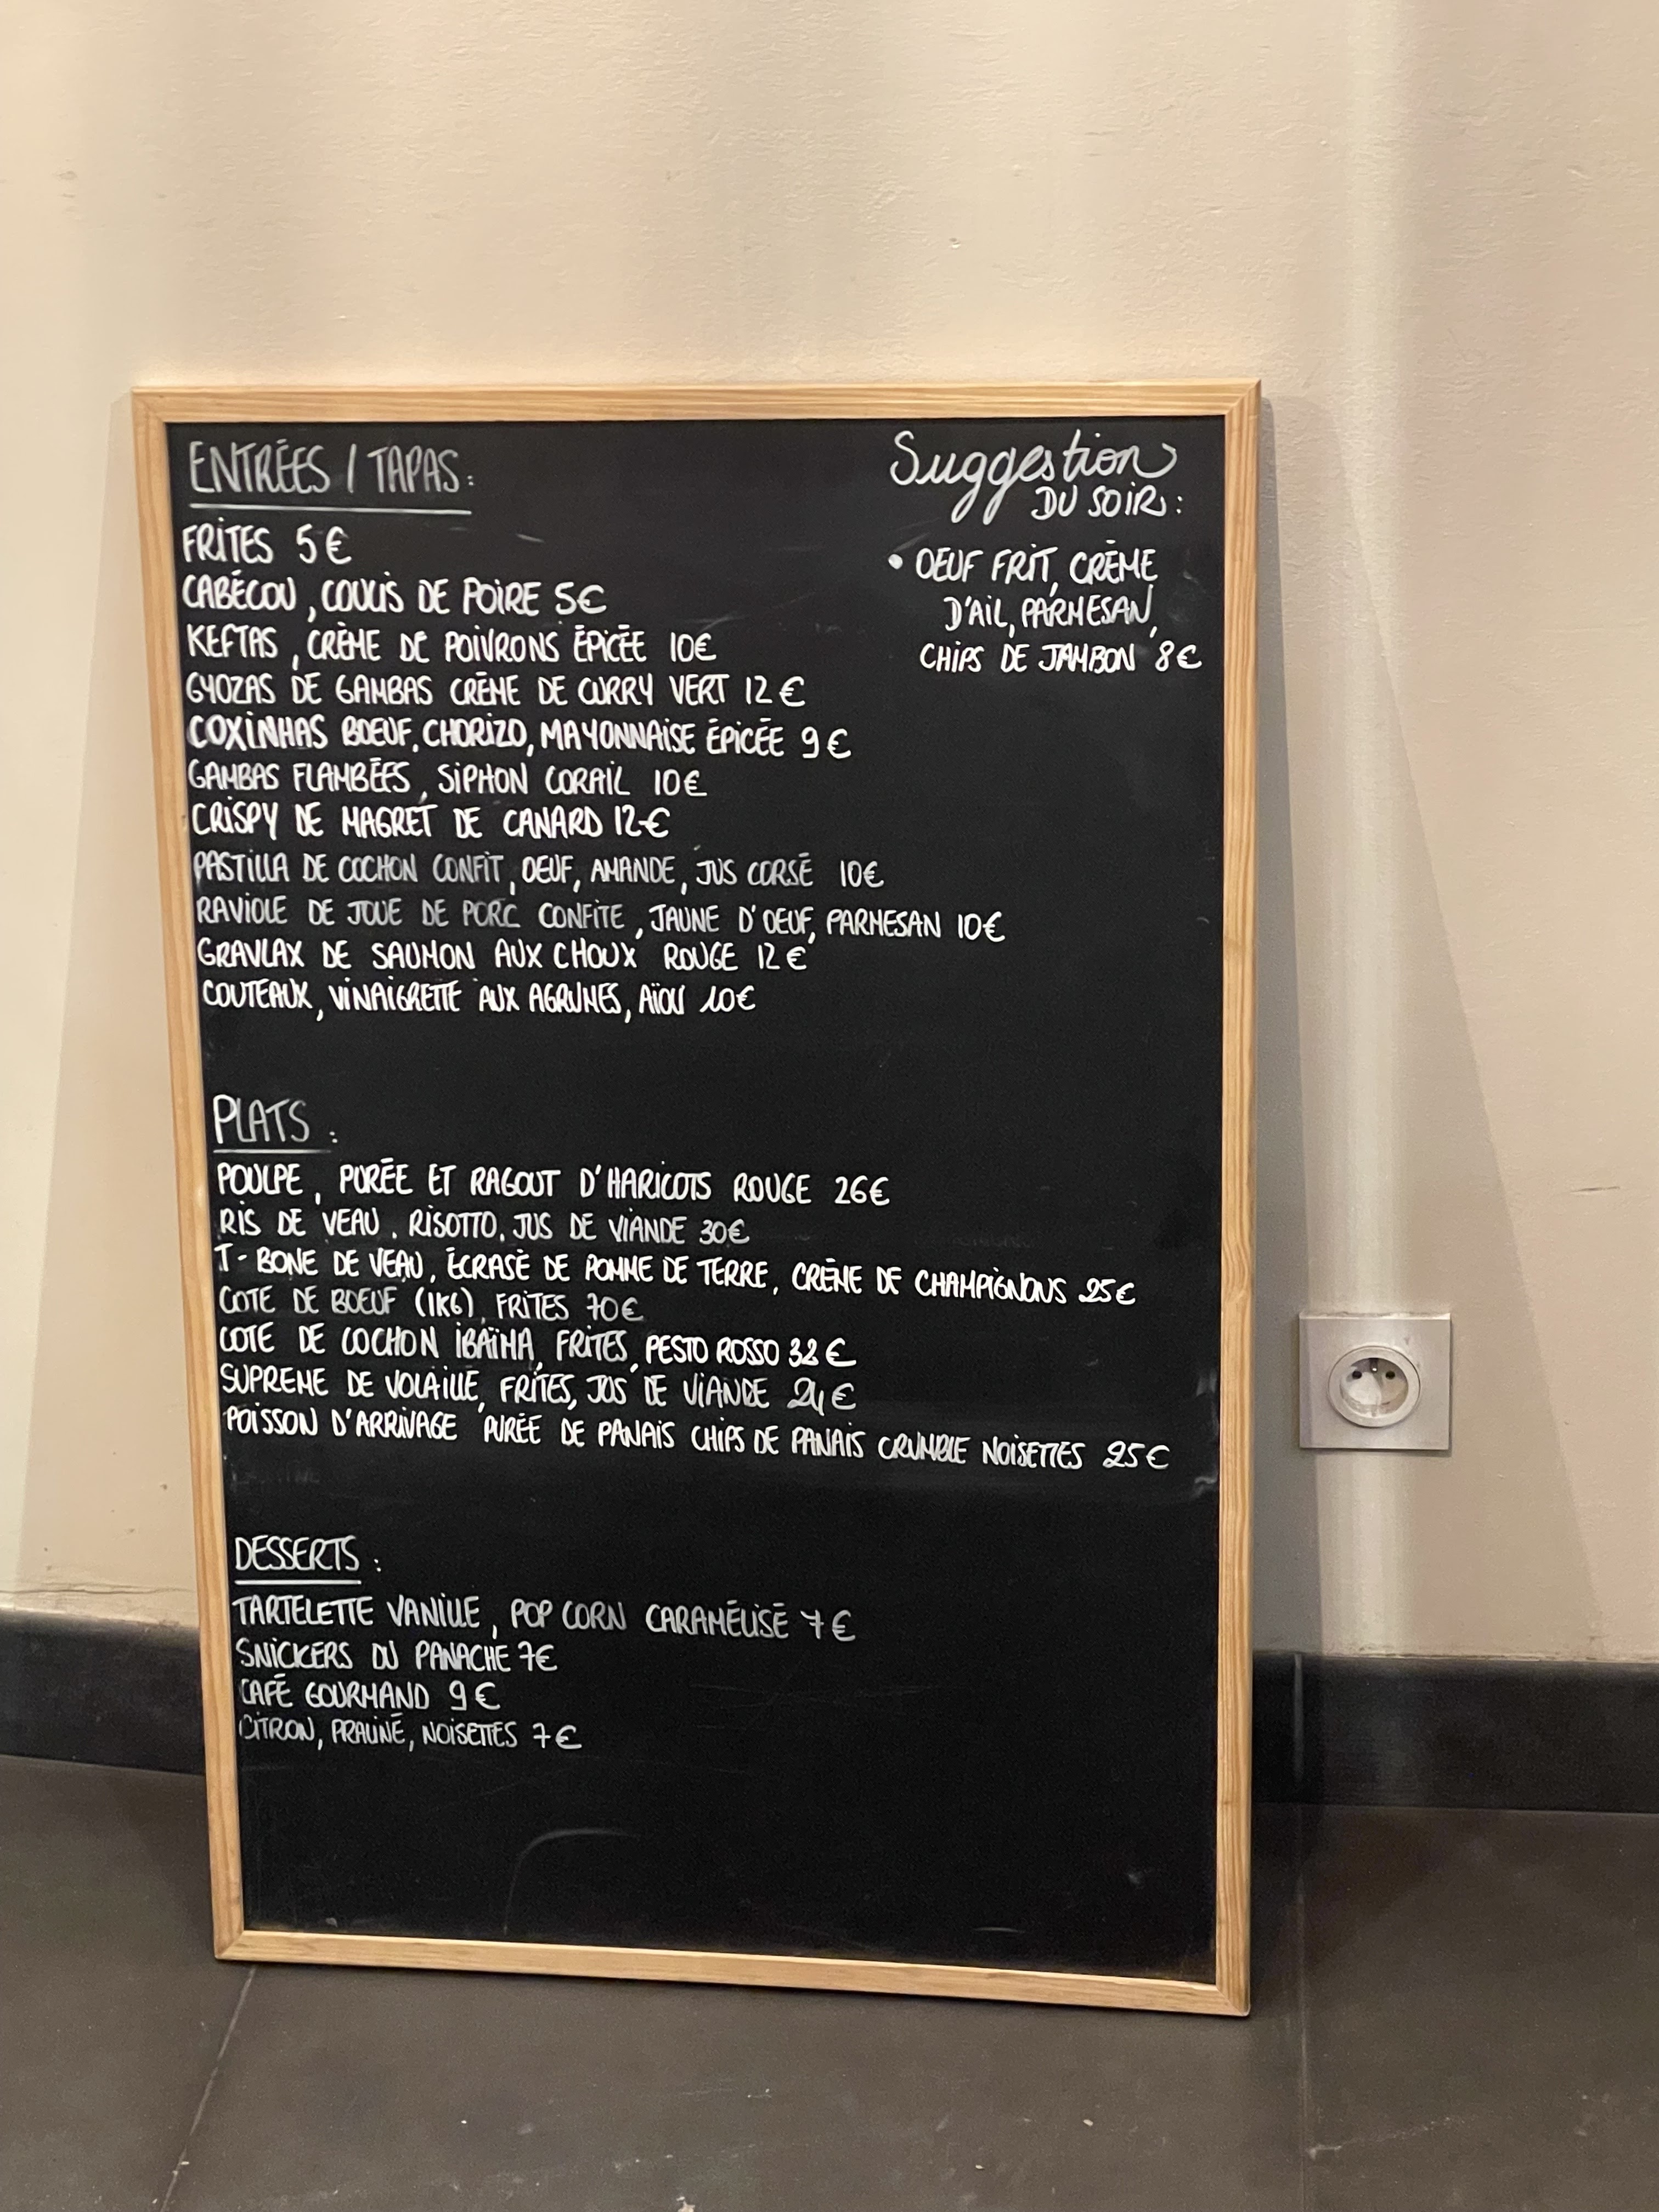 ENTRÉES / TAPAS :
FRITES 5€
CABÉCOU, COULIS DE POIRE 5€
KEFTAS, CRÈME DE POIVRONS ÉPICÉE 10€
GYOZAS DE GAMBAS CRÈME DE CURRY VERT 12€
COXINHAS BOEUF, CHORIZO, MAYONNAISE ÉPICÉE 9€
GAMBAS FLAMBÉES, SIPHON CORAIL 10€
CRISPY DE MAGRET DE CANARD 12€
PASTILLA DE COCHON CONFIT, OEUF, AMANDE, JUS CORSÉ 10€
RAVIOLE DE JOUE DE PORC CONFITE, JAUNE D'OEUF, PARMESAN 10€
GRAVLAX DE SAUMON AUX CHOUX ROUGE 12€
COUTEAUX, VINAIGRETTE AUX AGRUMES, AÏOLI 10€
Suggestion
DU SOIR :
• OEUF FRIT, CRÈME
D'AIL, PARMESAN,
CHIPS DE JAMBON 8€
PLATS :
POULPE, PURÉE ET RAGOUT D'HARICOTS ROUGE 26€
RIS DE VEAU, RISOTTO, JUS DE VIANDE 30€
T-BONE DE VEAU, ÉCRASÉ DE POMME DE TERRE, CRÈME DE CHAMPIGNONS 25€
COTE DE BOEUF (1KG), FRITES 70€
COTE DE COCHON IBAÏMA, FRITES, PESTO ROSSO 32€
SUPREME DE VOLAILLE, FRITES, JUS DE VIANDE 24€
POISSON D'ARRIVAGE PURÉE DE PANAIS CHIPS DE PANAIS CRUMBLE NOISETTES 25€
DESSERTS :
TARTELETTE VANILLE, POP CORN CARAMÉLISÉ 7€
SNICKERS DU PANACHE 7€
CAFÉ GOURMAND 9€
CITRON, PRALINÉ, NOISETTES 7€